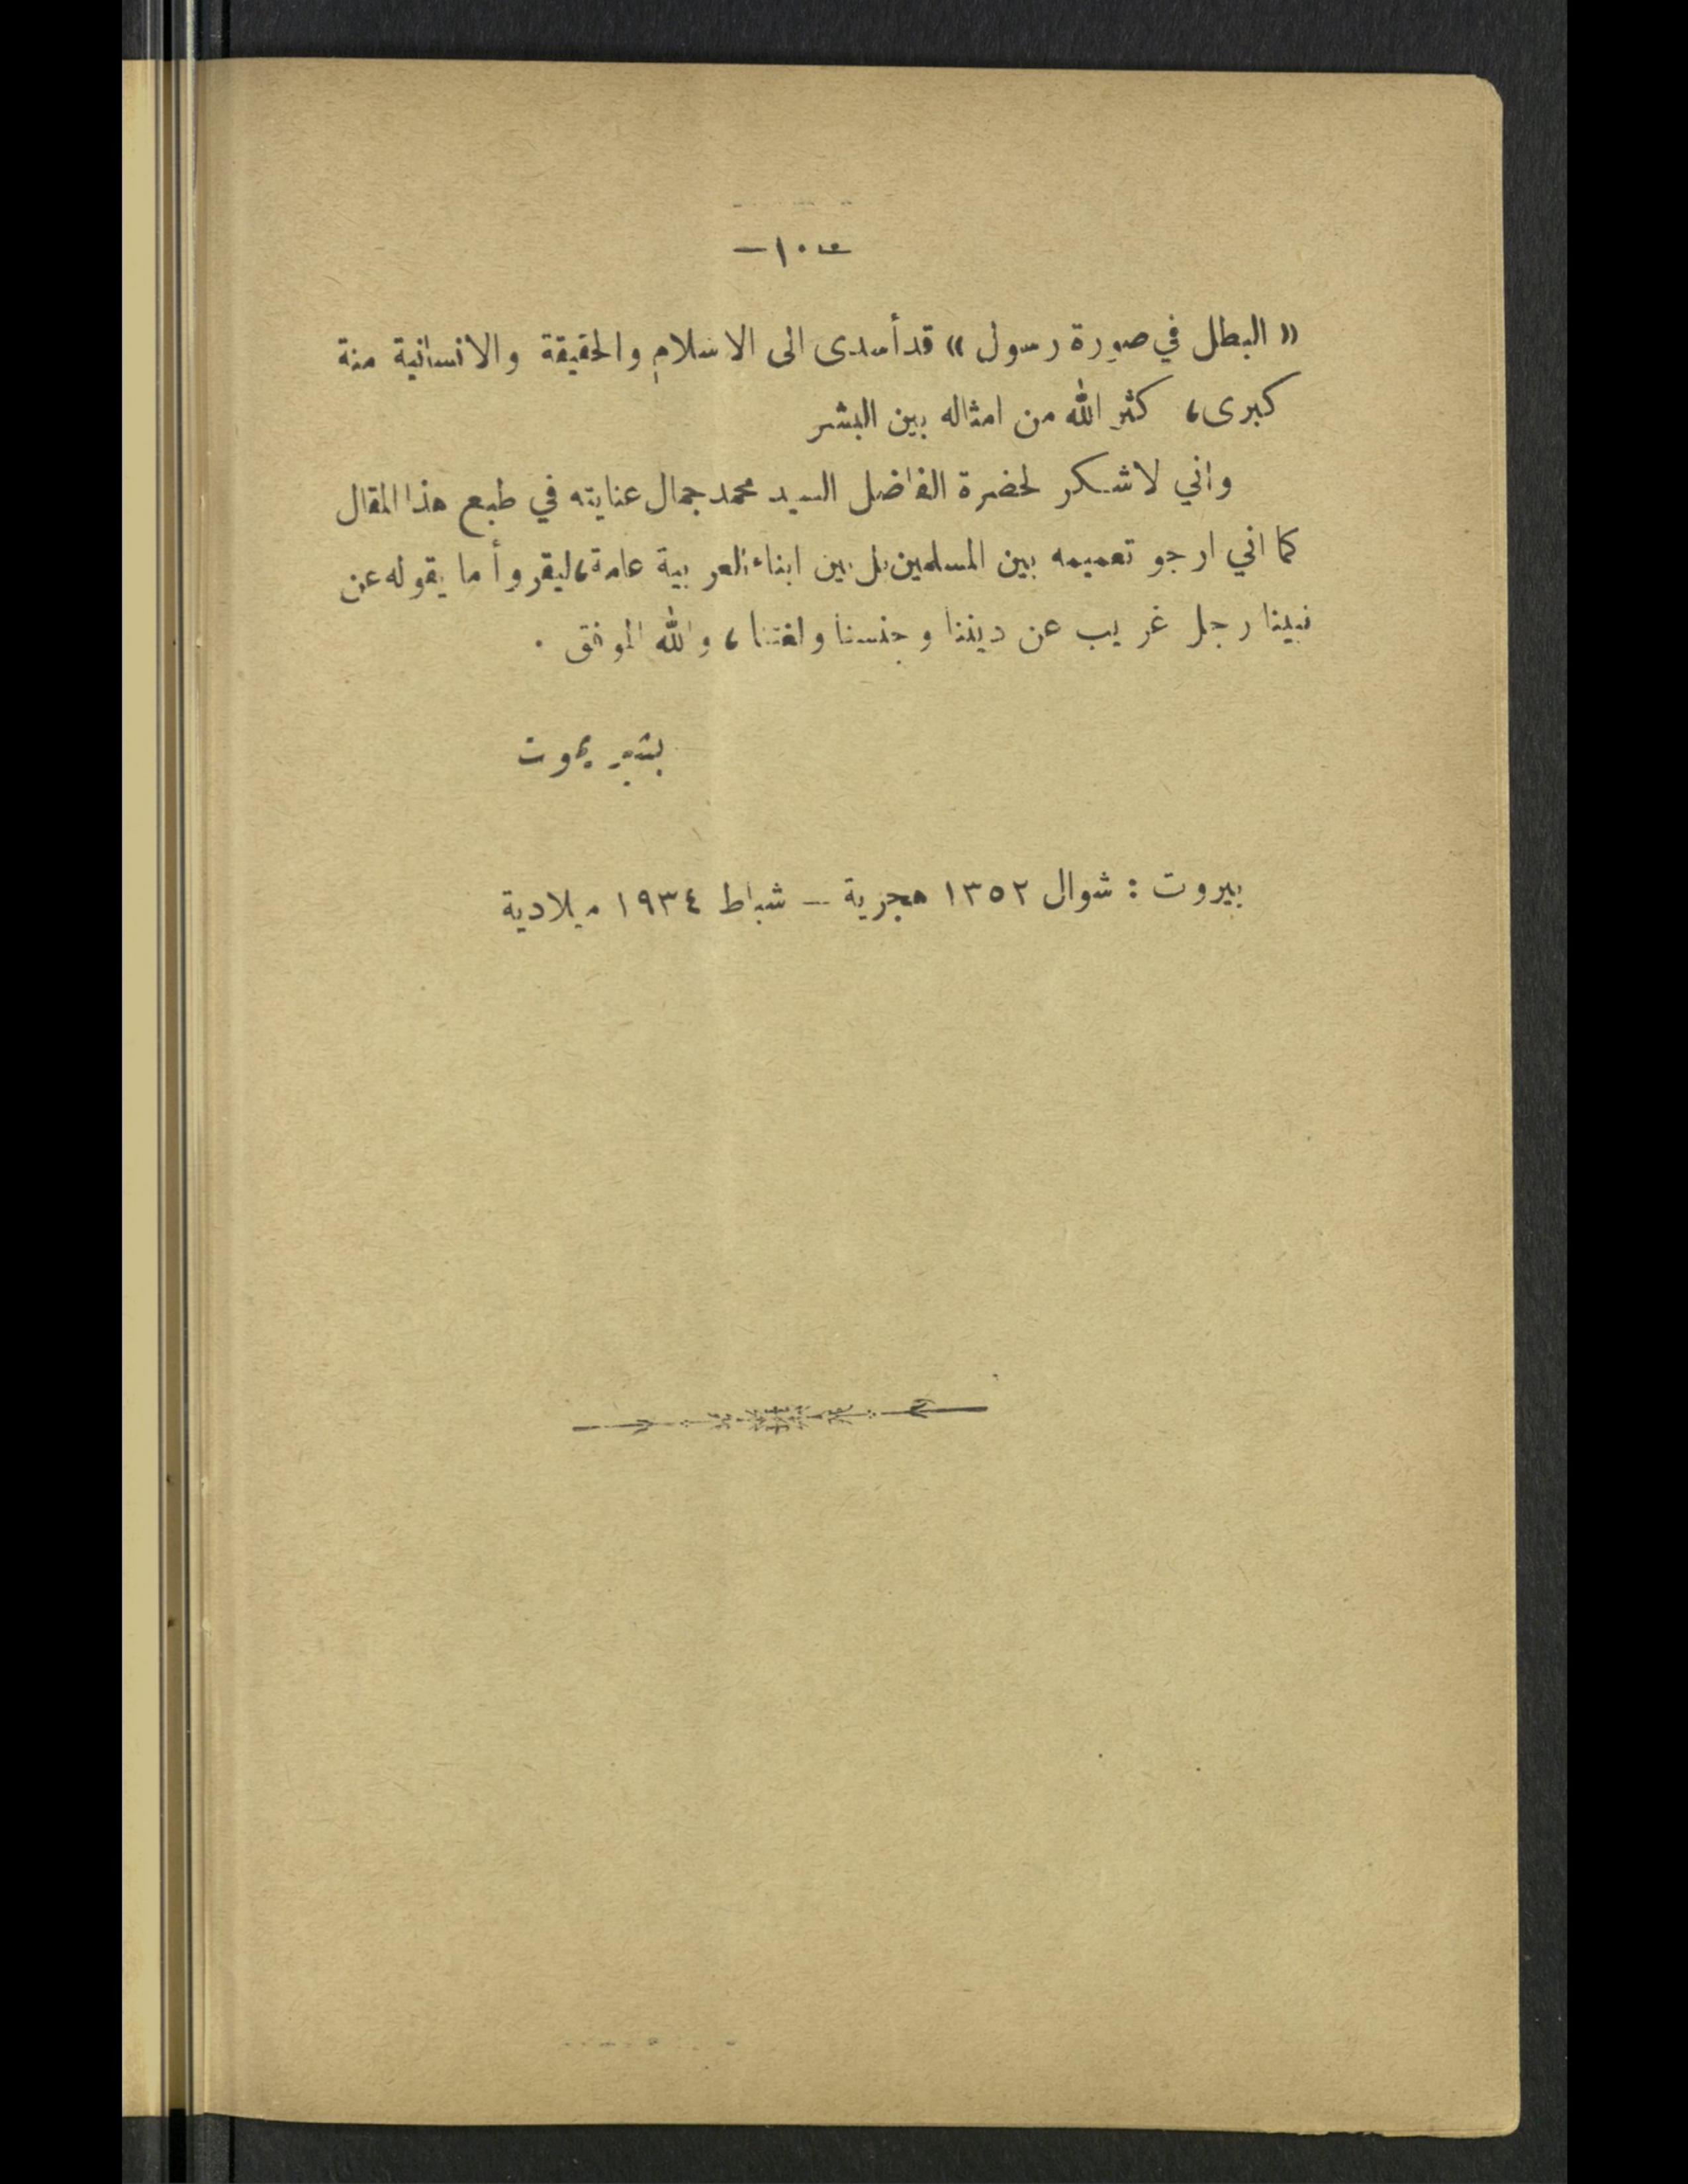 — ١٠ —
« البطل في صورة رسول » قد أسدى الى الاسلام والحقيقة والانسانية منة
كبرى، كثر الله من امثاله بين البشر
واني لاشكر لحضرة الفاضل السيد محمد جمال عنايته في طبع هذا المقال
كما اني ارجو تعميمه بين المسلمين بل بين ابناء العربية عامة، ليقروأ ما يقوله عن
نبينا رجل غريب عن ديننا وجنسنا ولغتنا، والله الموفق ٠
بشير يموت
بيروت : شوال ١٣٥٢ هجرية — شباط ١٩٣٤ ميلادية